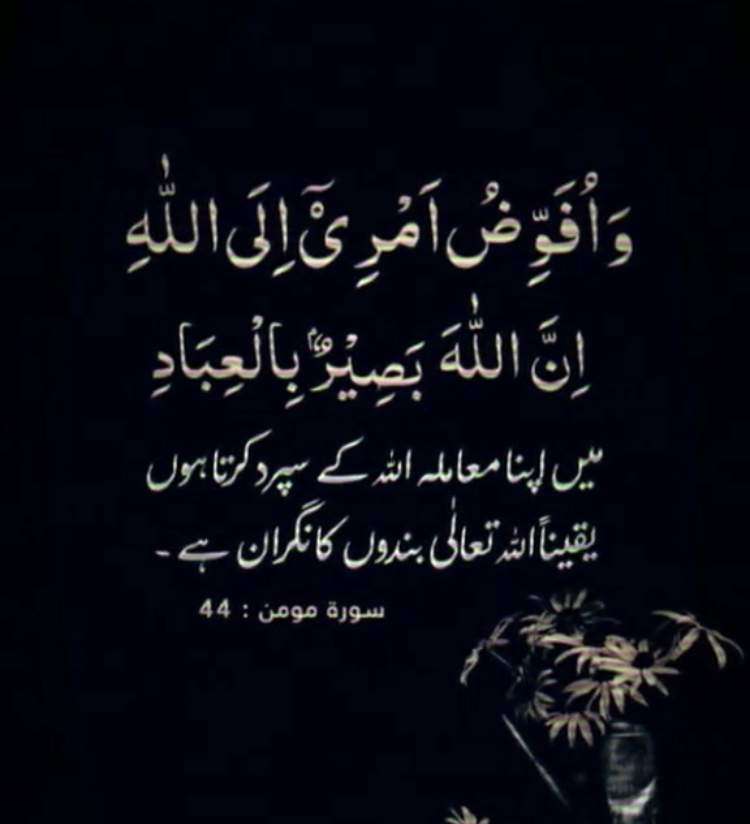 وَاُفَوِّضُ اَمْرِیْۤ اِلَی اللّٰهِ
اِنَّ اللّٰهَ بَصِیْرٌۢ بِالْعِبَادِ
میں اپنا معاملہ اللہ کے سپرد کرتا ہوں
یقیناً اللہ تعالٰی بندوں کا نگران ہے ۔
سورة مومن : 44